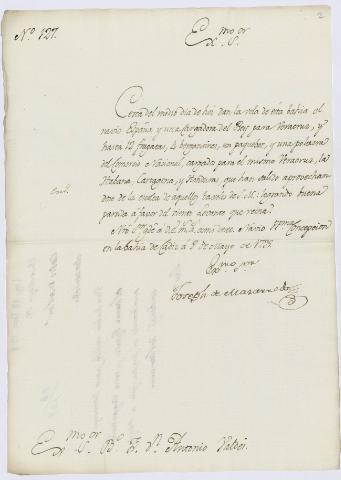 2
N.º 127.
Ex.mo S.or
Cerca del medio dia de hoi dan la vela de esta bahia el
navio España y una cargadora del Rei para Veracruz, y
hasta 12 fragatas, 4 bergantines, un paquebot, y una polacra
del Comercio Nacional, cargado para el mismo Veracruz, la
Habana, Cartagena, y Honduras que han salido aprovechan
dose de la de aquellos baxeles de S. M. logrando buena
partida a favor del viento Leveste que reina.
Ntro. Señor a V.E. m.s a.s como deseo. Navio Pma. Concepcion
en la bahia de Cadiz a 8 de Mayo de 1795.
Ex.mo S.or
Joseph de Mazarredo
Ex.mo S.or B.o Fr. D.n Antonio Valdes.